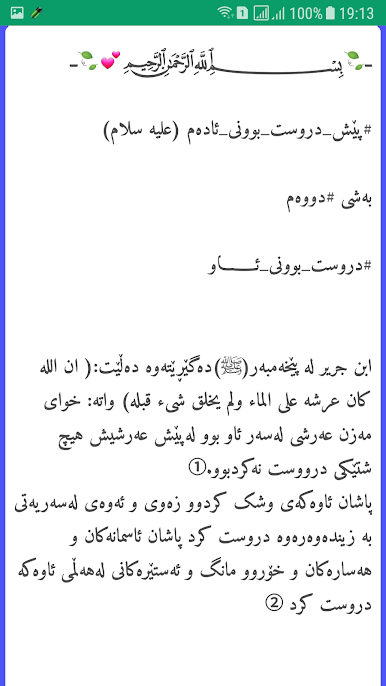 100% 19:13
-🍃💕﷽🍃-
#پێش_دروست_بوونی_ئادەم (علیه سلام)
بەشی #دووەم
#دروست_بوونی_ئـــــاو
ابن جریر لە پێخەمبەر(ﷺ)دەگێڕێتەوە دەڵێت:( ان الله
كان عرشه على الماء ولم يخلق شيء قبله) واتە: خوای
مەزن عەرشی لەسەر ئاو بوو لەپێش عەرشیش هیچ
شتێکی درووست نەکردبوو.①
پاشان ئاوەکەی وشک کردوو زەوی و ئەوەی لەسەریەتی
بە زیندەوەرەوە دروست کرد پاشان ئاسمانەکان و
هەسارەکان و خۆروو مانگ و ئەستێرەکانی لەهەڵمی ئاوەکە
دروست کرد ②